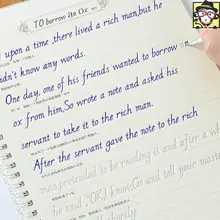 TO borrow an Ox
upon a time, there lived a rich man, but he
dn't know any words.
One day, one of his friends wanted to borrow
ox from him, So wrote a note and asked his
servant to take it to the rich man.
After the servant gave the note to the rich
man, pretended to be reading it and after a
he said, "OK! I know, Go and tell your master